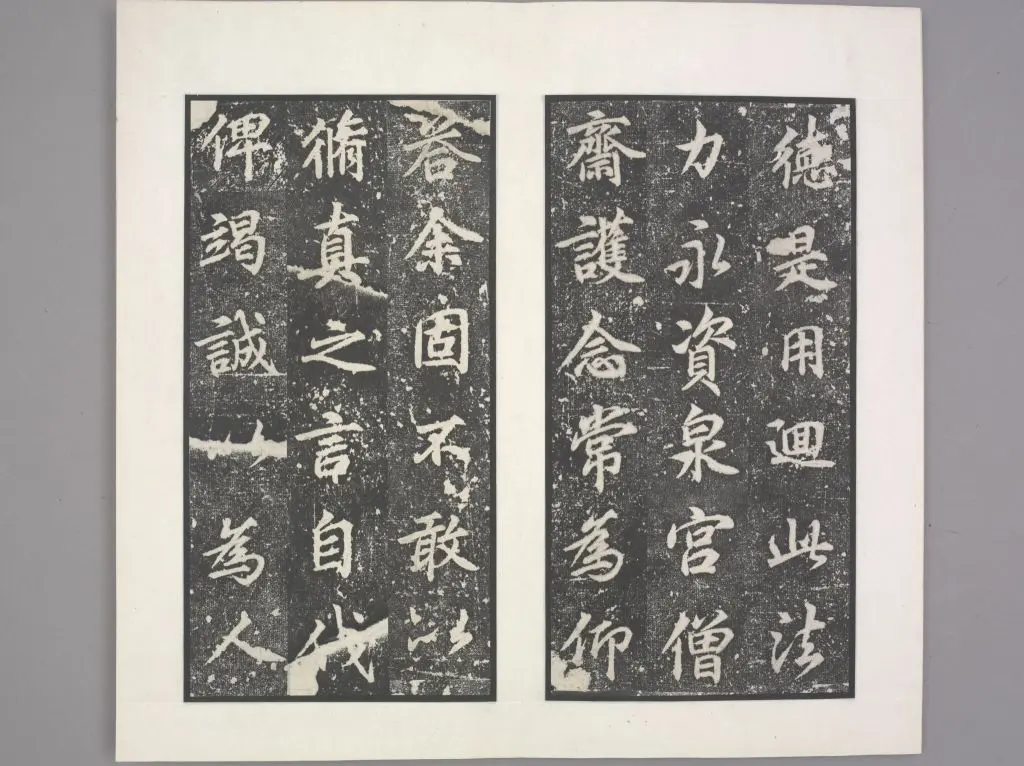 德是用迴此法
力永資泉宮僧
齋護念常為仰
荅余固不敢以
脩真之言自伐
俾竭誠以為人